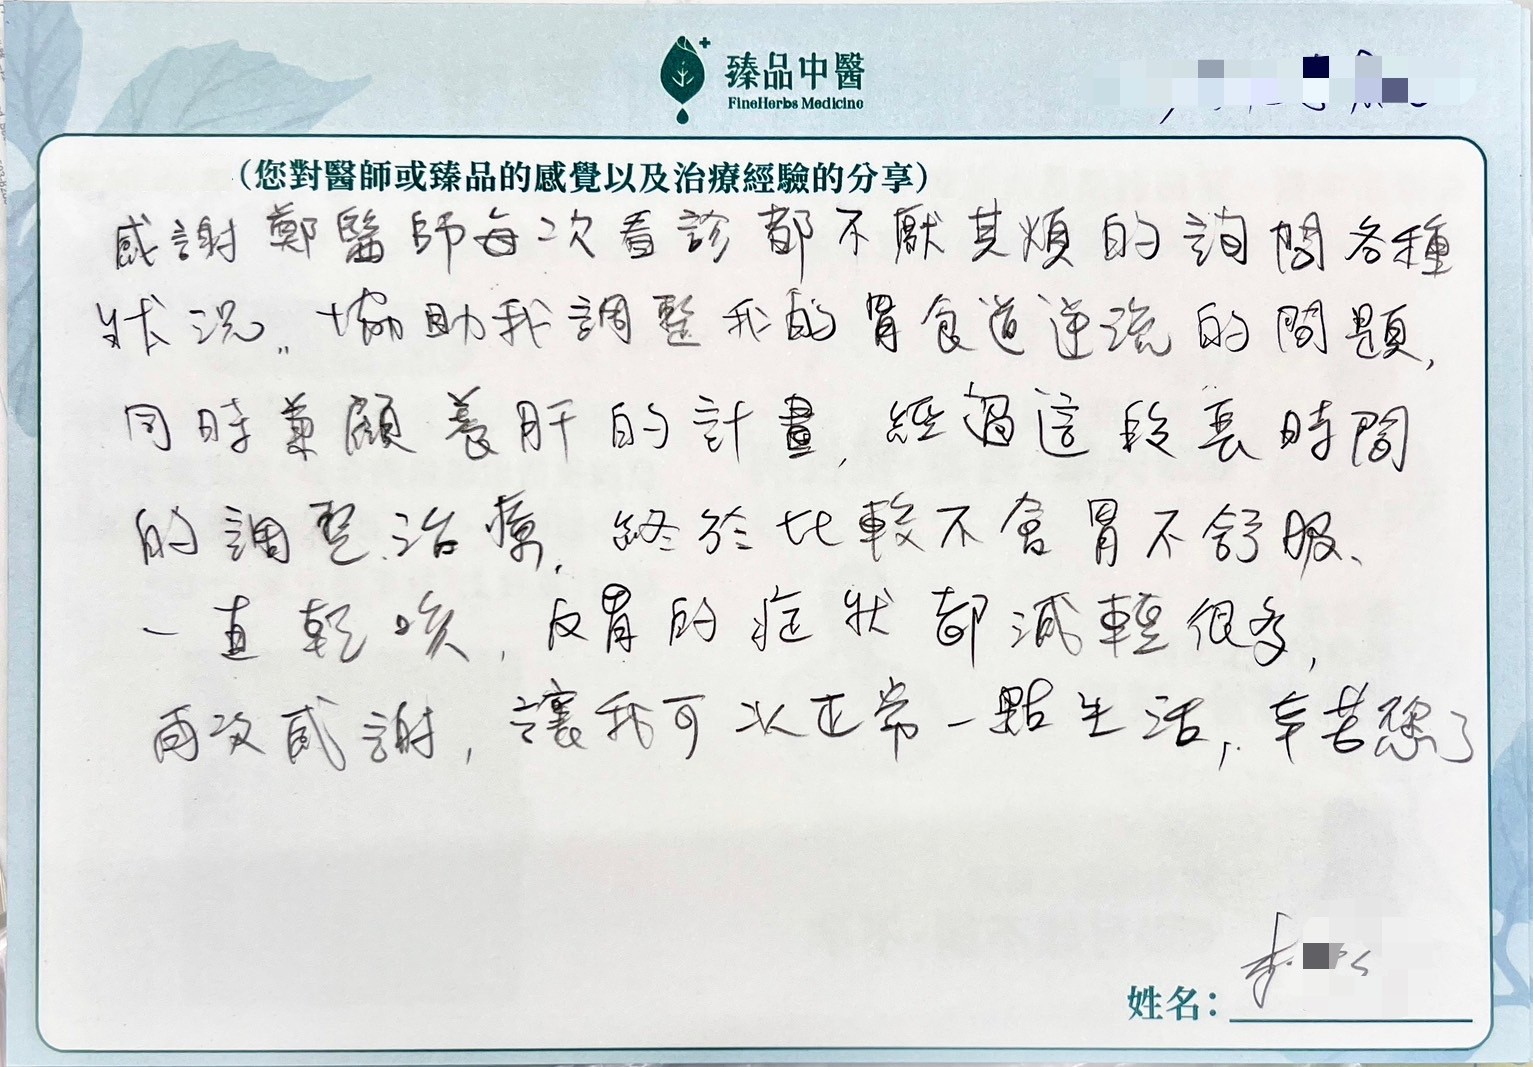 臻品中醫
FineHerbs Medicine
(您對醫師或臻品的感覺以及治療經驗的分享)
感謝鄭醫師每次看診都不厭其煩的詢問各種
狀況,協助我調整我的胃食道逆流的問題,
同時兼顧養肝的計畫,經過這段長時間
的調整治療,終於比較不會胃不舒服、
一直乾咳,反胃的症狀都減輕很多,
再次感謝,讓我可以正常一點生活,辛苦您了
姓名: